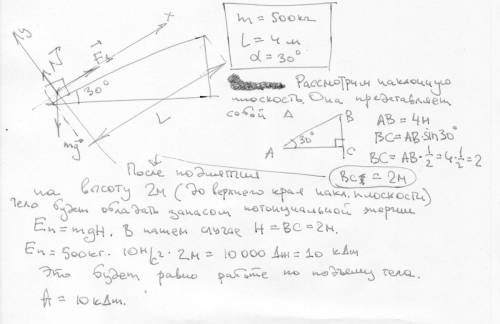 m = 500кг
L = 4 м
α = 30°
y
x
N
F
30°
L
mg
Рассмотрим наклонную
плоскость. Она представляет
собой Δ
A
30°
B
C
AB = 4м
BC = AB·sin30°
BC = AB·1/2 = 4·1/2 = 2
BC = 2м
После поднятия
на высоту 2м (до верхнего края накл. плоскости)
тело будет обладать запасом потенциальной энергии
Eп = mgH. В нашем случае H = BC = 2м.
Eп = 500кг · 10м/с² · 2м = 10 000 Дж = 10 кДж
Это будет равно работе по подъему тела.
A = 10кДж.